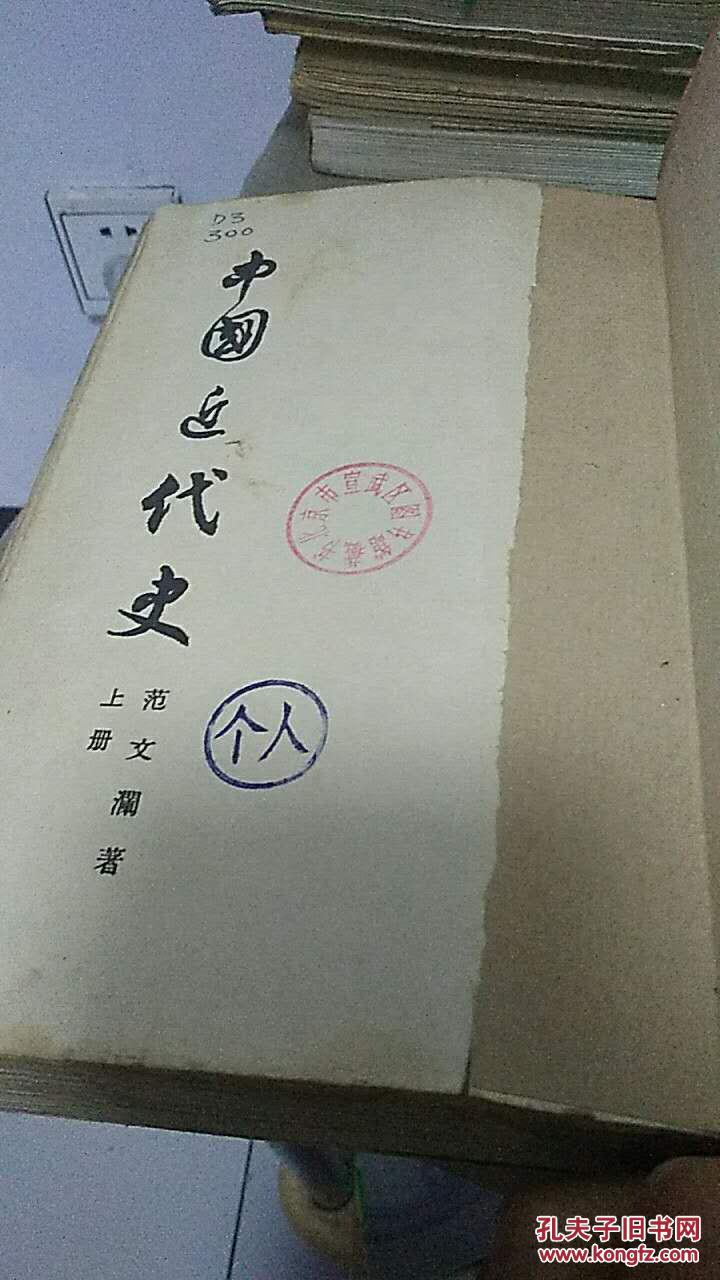 D3
300
中國近代史
范文瀾著
上册
北京市宣武区圖书館藏书
个人
孔夫子旧书网
www.kongfz.com